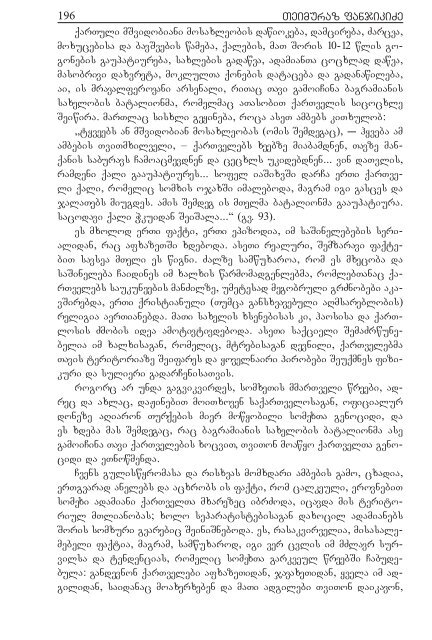 196 თეიმურაზ ფანჯიკიძე
ქართული მშვიდობიანი მოსახლეობის დაწიოკება, დამცირება, ძარცვა,
მოხუცებისა და ბავშვების წამება, ქალების, მათ შორის 10-12 წლის გო-
გონების გაუპატიურება, სახლების გადაწვა, ადამიანთა ცოცხლად დაწვა,
მასობრივი დახვრეტა, მოკლულთა ქონების დატაცება და გადანაწილება,
აი, ის მრავალფეროვანი არსენალი, რითაც თავი გამოიჩინა ბაგრამიანის
სახელობის ბატალიონმა, რომელმაც ათასობით ქართველის სიცოცხლე
შეიწირა. მართლაც სისხლი გეყინება, როცა ასეთ ამბებს კითხულობ:
„ტყვეებს ან მშვიდობიან მოსახლეობას (ომის შემდეგაც), — ჰყვება ამ
ამბების თვითმხილველი, – ქართველებს ხეებზე მიაბამდნენ, თავზე მან-
ქანის საბურავს ჩამოაცმევდნენ და ცეცხლს უკიდებდნენ... ვინ დათვლის,
რამდენი ქალი გააუპატიურეს... სოფელ იაშთხვში დარჩა ერთი ქართვე-
ლი ქალი, რომელიც სომხის ოჯახში იმალებოდა, მაგრამ იგი გასცეს და
ჯალათებს მიუგდეს. ამის შემდეგ ის მთელმა ბატალიონმა გააუპატიურა.
საცოდავი ქალი ჭკუიდან შეიშალა...“ (გვ. 93).
ეს მხოლოდ ერთი ფაქტი, ერთი ეპიზოდია, იმ საშინელებების სერი-
ალიდან, რაც აფხაზეთში ხდებოდა. ასეთი რეალური, შემზარავი ფაქტე-
ბით სავსეა მთელი ეს წიგნი. ძალზე სამწუხაროა, რომ ეს მხეცობა და
საშინელება ჩაიდინეს იმ ხალხის წარმომადგენლებმა, რომლებთანაც ქა-
რთველებს საუკუნეების მანძილზე, უმეტესად მეგობრული გრძნობები აკა-
ვშირებდა, ერთი ქრისტიანული (თუმცა განსხვავებული აღმსარებლობის)
რელიგია აერთიანებდა. მათი სახელის ხსენებისას კი, ჰაოსისა და ქართ-
ლოსის ძმობის იდეა ამოტივტივდებოდა. ასეთი საქციელი შემაძრწუნე-
ბელია იმ ხალხისაგან, რომელიც, მტრებისაგან დევნილი, ქართველებმა
თავის ტერიტორიაზე შეიფარეს და ყოველნაირი პირობები შეუქმნეს ფიზი-
კური და სულიერი გადარჩენისათვის.
როგორც არ უნდა გაგვიკვირდეს, სომხეთის მმართველი წრეები, ად-
რეც და ახლაც, დაჟინებით მოითხოვენ საქართველოსაგან, ოფიციალურ
დონეზე აღიარონ თურქების მიერ მოწყობილი სომეხთა გენოციდი, და
ეს ხდება მას შემდეგაც, რაც ბაგრამიანის სახელობის ბატალიონმა ასე
გამოიჩინა თავი ქართველების ხოცვით, თვითონ მოაწყო ქართველთა გენო-
ციდი და ეთნოწმენდა.
ჩვენს გულისწყრომასა და რისხვას მომხდარი ამბების გამო, ცხადია,
ერთგვარად ანელებს და აცხრობს ის ფაქტი, რომ ცალკეული, ეროვნებით
სომეხი ადამიანი ქართველთა მხარეზეც იბრძოდა, იცავდა მის ტერიტო-
რიულ მთლიანობას; ხოლო სეპარატისტებისაგან დახოცილ ადამიანებს
შორის სომხური გვარებიც შეინიშნებოდა. ეს, რასაკვირველია, მისასალე-
მებელი ფაქტია, მაგრამ, სამწუხაროდ, იგი ვერ ცვლის იმ მძლავრ სურ-
ვილსა და ტენდენციას, რომელიც სომეხთა გარკვეულ წრეებში ჩაბუდე-
ბულა: განდევნონ ქართველები აფხაზეთიდან, ჯავახეთიდან, ყველა იმ ად-
გილიდან, საიდანაც მოახერხებენ და მათი ადგილები თვითონ დაიკავონ,